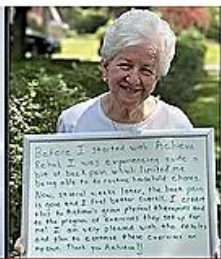 Before I started with Achieve
Rehab I was experiencing quite a
bit of back pain which limited me
being able to do routine household chores.
Now, several weeks later, the back pain
is gone and I feel better overall. I credit
this to Achieve's great physical therapists and
to the program of exercises they set up for
me. I am very pleased with the results
and plan to continue these exercises on
my own. Thank you Achieve!!